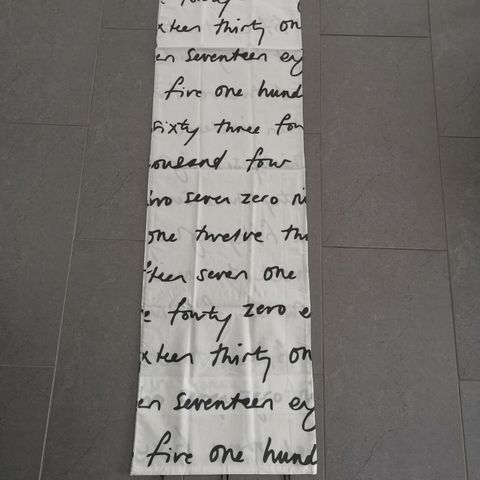 e fourty
xteen thirty on
en seventeen eig
five one hund
sixty three fou
ousand four
two seven zero ni
one twelve th
fteen seven one
e fourty zero e
xteen thirty on
en seventeen eig
five one hund